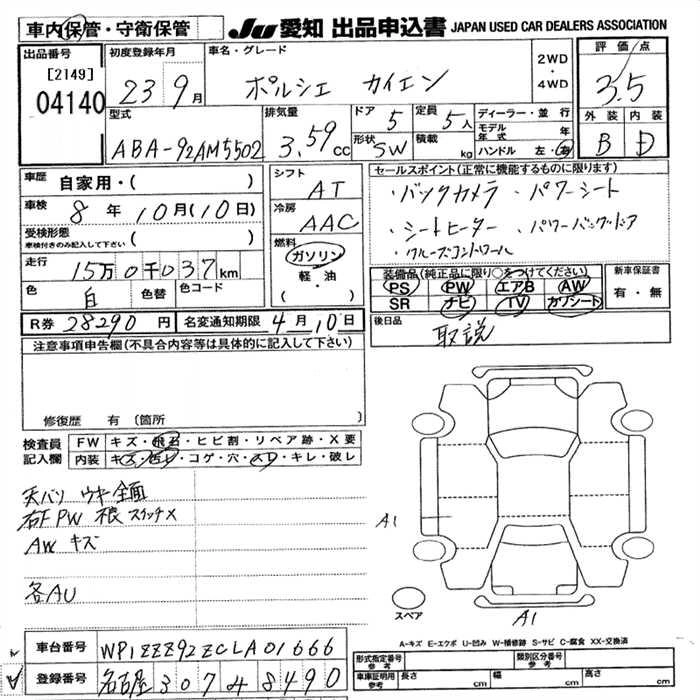 車内保管・守衛保管
JU 愛知 出品申込書 JAPAN USED CAR DEALERS ASSOCIATION
出品番号
[2149]
04140
初度登録年月
23 9月
車名・グレード
ポルシェ カイエン
2WD
・
4WD
評価点
3.5
外装 内装
B D
型式
ABA-92AM5502
排気量
3.59cc
ドア
5
形状
SW
定員
5人
積載
kg
ディーラー・並行
モデル年式 年
ハンドル 左・右
車歴
自家用・( )
車検
8年10月(10日)
受検形態
車検付きのみ記入して下さい
( )
走行
15万0千037km
色
白
色替
色コード
シフト
AT
冷房
AAC
燃料
ガソリン
軽・油
( )
セールスポイント(正常に機能するものに限ります)
・バックカメラ ・パワーシート
・シートヒーター ・パワーバックドア
・クルーズコントロール
装備品(純正品に限り○をつけてください)
PS PW エアB AW
SR ナビ TV カワシート
新車保証書
有・無
R券 28290円
名変通知期限 4月10日
後日品
取説
注意事項申告欄(不具合内容等は具体的に記入して下さい)
修復歴 有 (箇所 )
検査員
記入欄
FW キズ・飛石・ヒビ割・リペア跡・X要
内装 キズ・汚レ・コゲ・穴・スレ・キレ・破レ
天バリ ウキ全面
右F PW 根 スイッチX
AW キズ
各AU
A1
A1
スペア
A-キズ E-エクボ U-凹み W-補修跡 S-サビ C-腐食 XX-交換済
車台番号 WP1ZZZ92ZCLA01666
登録番号 名古屋 307 ま 8490
形式指定番号
参考
類別区分番号
参考
車庫証明用
参考
長さ cm
幅 cm
高さ cm